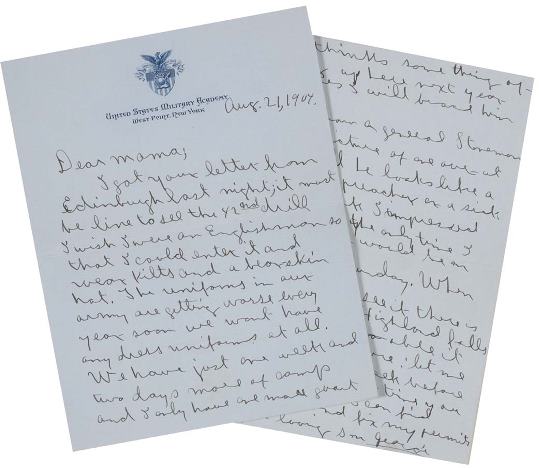 United States Military Academy
West Point, New York
Aug. 21, 1904.
Dear Mama;
I got your letter from
Edinburgh last night, it must
be fine to see the 42nd drill
I wish I were an Englishman so
that I could enter it and
wear kilts and a bearskin
hat. The uniforms in our
army are getting worse evry
year soon we wont have
any dress uniforms at all.
We have just one week and
two days more of camp
and I only have one more guard
thinks some thing of
up here next year
I will board him
a general
of one out at
he looks like a
preacher or a sick
I impressed
the only time I
would be an
sunday. When
see it there is
Highland falls
it
let me
before
you
find
and fix my permits
loving son George